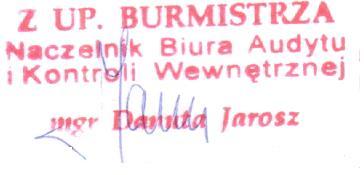 Z UP. BURMISTRZA
Naczelnik Biura Audytu
i Kontroli Wewnętrznej
mgr Danuta Jarosz